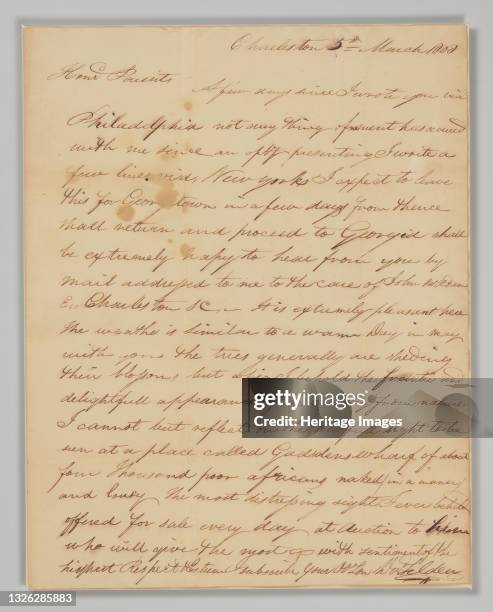 Charleston 5th March 1808
Hond Parents
A few days since I wrote you via
Philadelphia not any thing of moment has occured
with me since an opty presenting I write a
few lines via New York I expect to leave
this for Georgetown in a few days from thence
shall return and proceed to Georgia shall
be extremely hapy to hear from you by
mail addressed to me to the care of John
Charleston SC.— It is extremely pleasant here
the weather is similar to a warm Day in may
with you the trees generally are sheding
their blossoms but I behold the and
delightfull appearance from nature
I cannot but reflect on the sight to be
seen at a place called Gadsdens Wharf of about
four thousand poor africans naked in a maner
and lousy the most distressing sight I ever beheld
offered for sale every day at auction to
who will give the most with sentiments of the
highest Respect & Esteem subscribe your
gettyimages
Credit: Heritage Images
1326285883